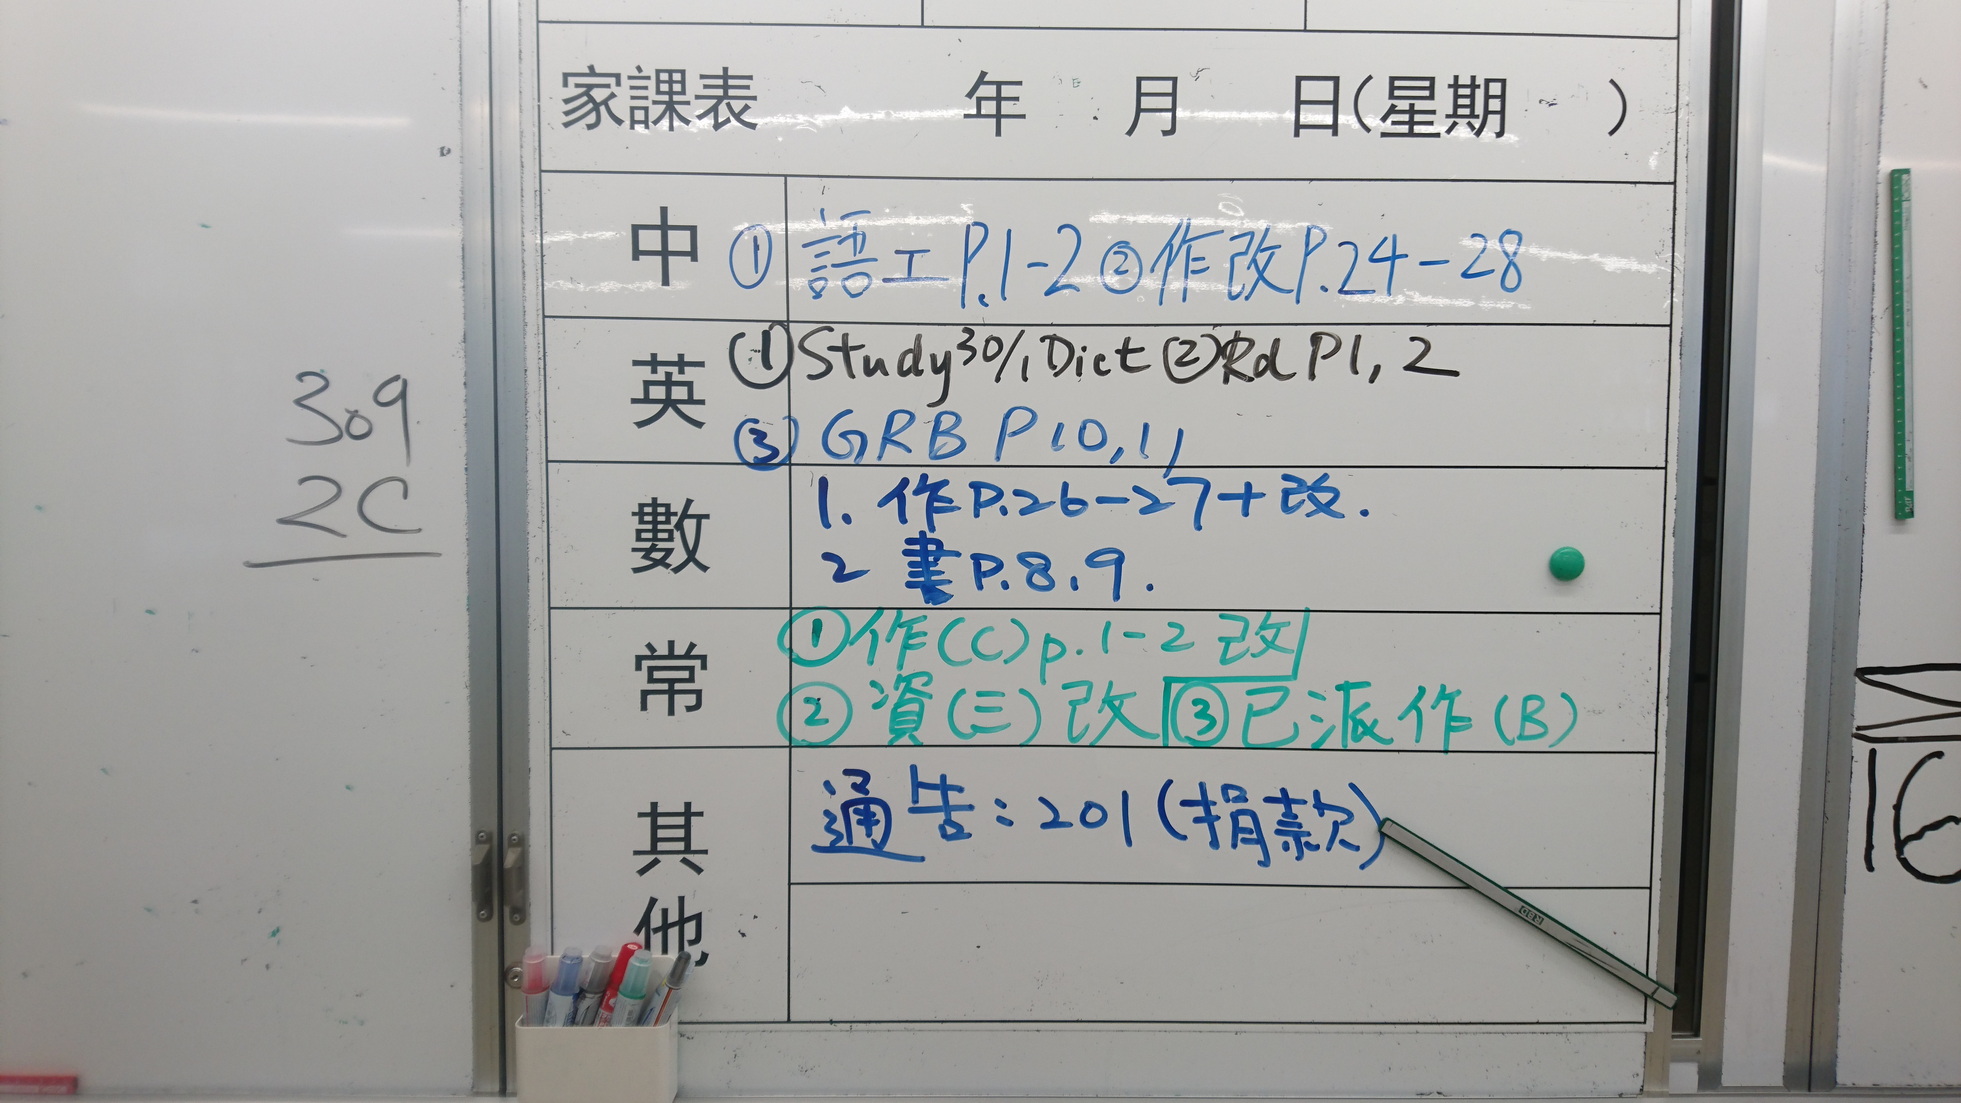 家課表 年 月 日(星期 )
中 ① 語工P.1-2 ②作改P.24-28
英 ① Study 30/1 Dict ② Rd P1, 2
③ GRB P10, 11
數 1. 作P.26-27+改.
2 書P.8.9.
常 ①作(C)p.1-2 改
②資(三)改 ③已派作(B)
其他 通告:201(捐款)
309
2C
16